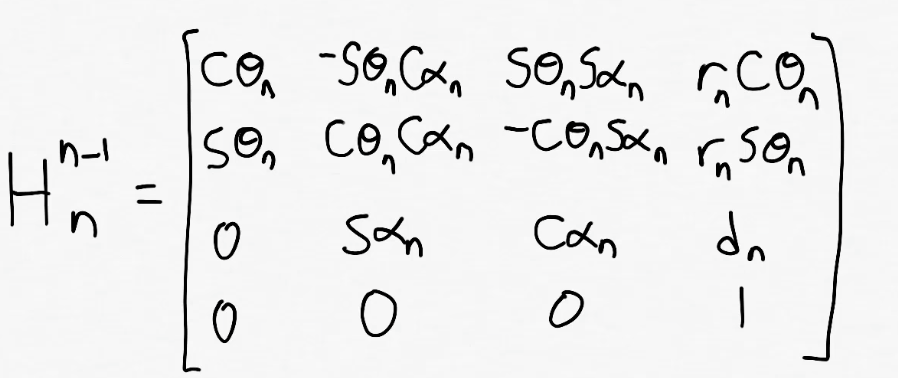 Cθₙ -SθₙCαₙ SθₙSαₙ rₙCθₙ
Sθₙ CθₙCαₙ -CθₙSαₙ rₙSθₙ
Hₙⁿ⁻¹ =
0 Sαₙ Cαₙ dₙ
0 0 0 1